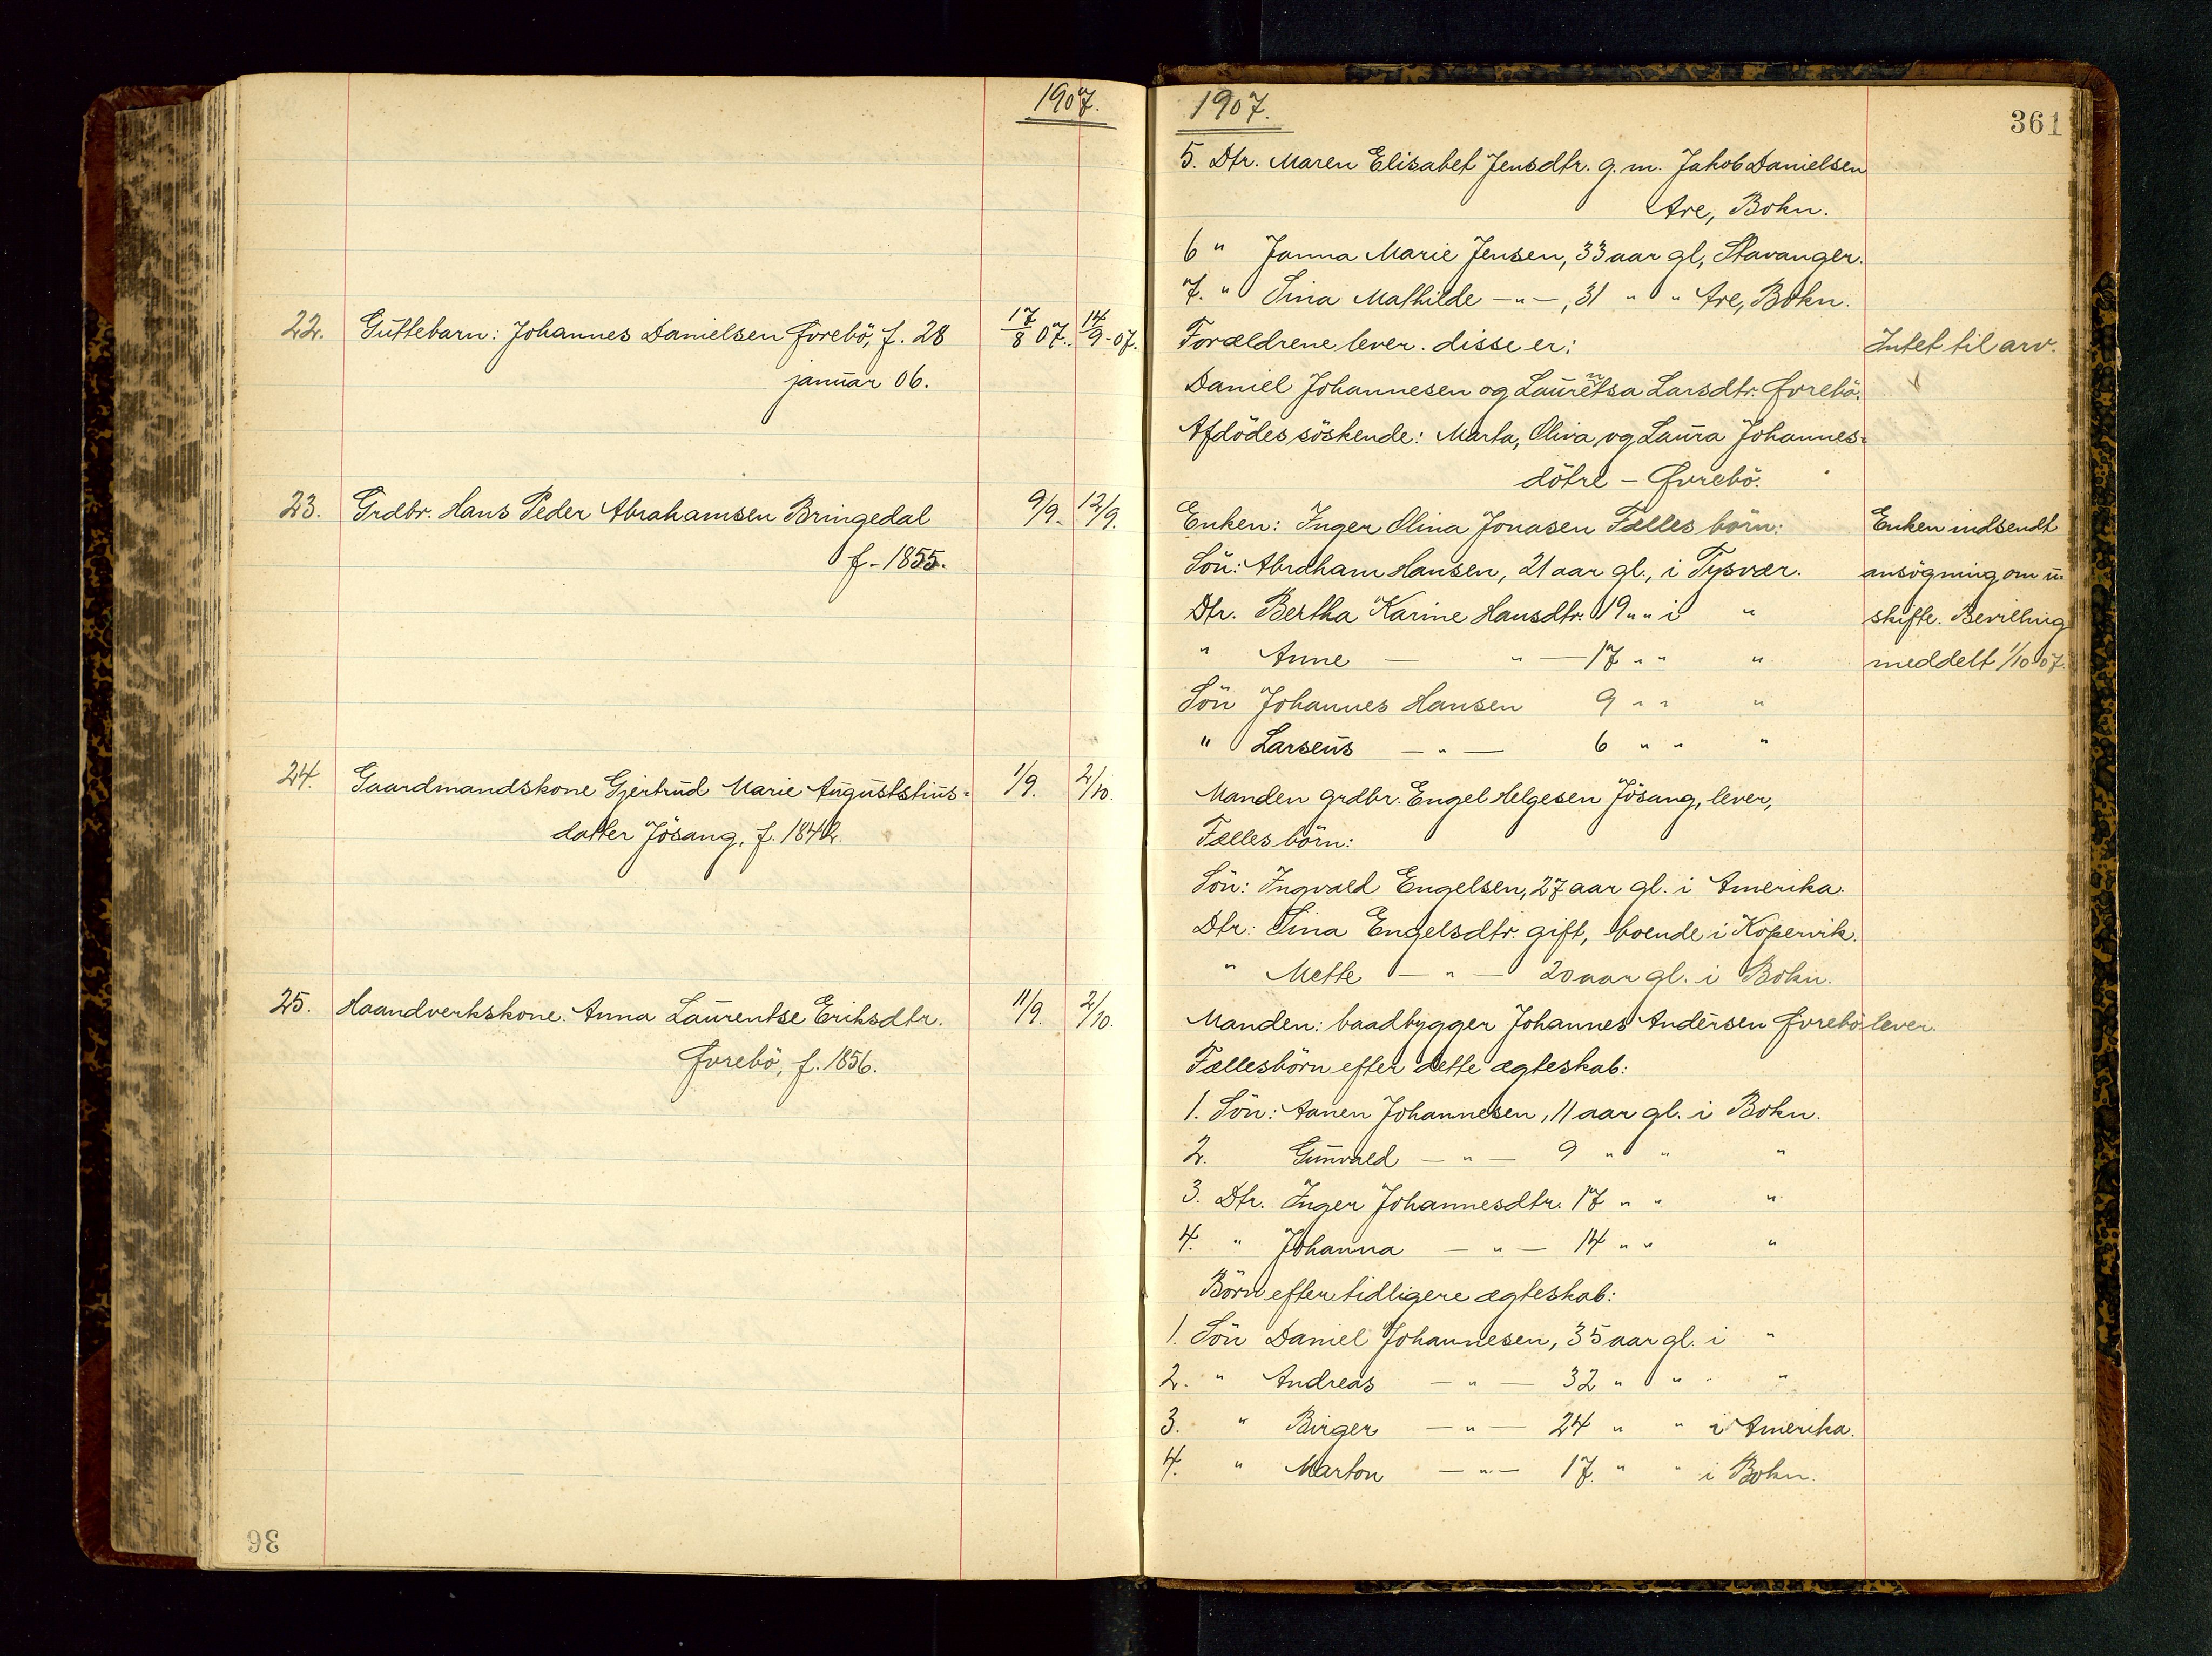 1907.
22. Guttebarn: Johannes Danielsen Øvrebö, f. 28 17/8 07. 14/9-07.
januar 06.
23. Grdbr. Hans Peder Abrahamsen Bringedal 9/9. 12/9.
f. 1855.
24. Gaardmandskone Gjertrud Marie Auguststins= 1/9. 2/10.
datter Jösang, f. 1842.
25. Haandverkskone. Anna Laurentse Eriksdtr. 11/9. 2/10.
Øvrebö, f. 1856.
36
1907.
361
5. Dtr. Maren Elisabet Jensdtr. g. m. Jakob Danielsen
Are, Bokn.
6 " Janna Marie Jensen, 33 aar gl, Stavanger.
7. " Sina Mathilde — " —, 31 " " Are, Bokn.
Forældrene lever. disse er: Intet til arv.
Daniel Johannesen og Lauretnsa Larsdtr. Øvrebö.
Afdödes söskende: Marta, Oliva og Laura Johannes=
dötre – Øvrebö.
Enken: Inger Olina Jonasen Fælles börn: Enken indsendt
Sön: Abraham Hansen, 21 aar gl., i Tysvær. ansögning om u-
Dtr. Bertha Karine Hansdtr. 19 " " i " skifte. Bevilling
" Anne — " — 17 " " " meddelt 1/10 07.
Sön Johannes Hansen 9 " " "
" Larseus — " — 6 " " "
Manden grdbr. Engel Helgesen Jösang, lever,
Fælles börn:
Sön: Ingvald Engelsen, 27 aar gl. i Amerika.
Dtr: Sina Engelsdtr. gift, boende i Kopervik.
" Mette — " — 20 aar gl. i Bokn.
Manden: baadbygger Johannes Andersen Øvrebö lever.
Fællesbörn efter dette ægteskab:
1. Sön: Aanen Johannesen, 11 aar gl. i Bokn.
2. Gunvald — " — 9 " " "
3. Dtr. Inger Johannesdtr. 17 " " "
4. " Johanna — " — 14 " " "
Börn efter tidligere ægteskab:
1. Sön Daniel Johannesen, 35 aar gl. i "
2. " Andreas — " — 32 " " "
3. " Birger — " — 24 " " i Amerika.
4. " Marton — " — 17. " " i Bokn.